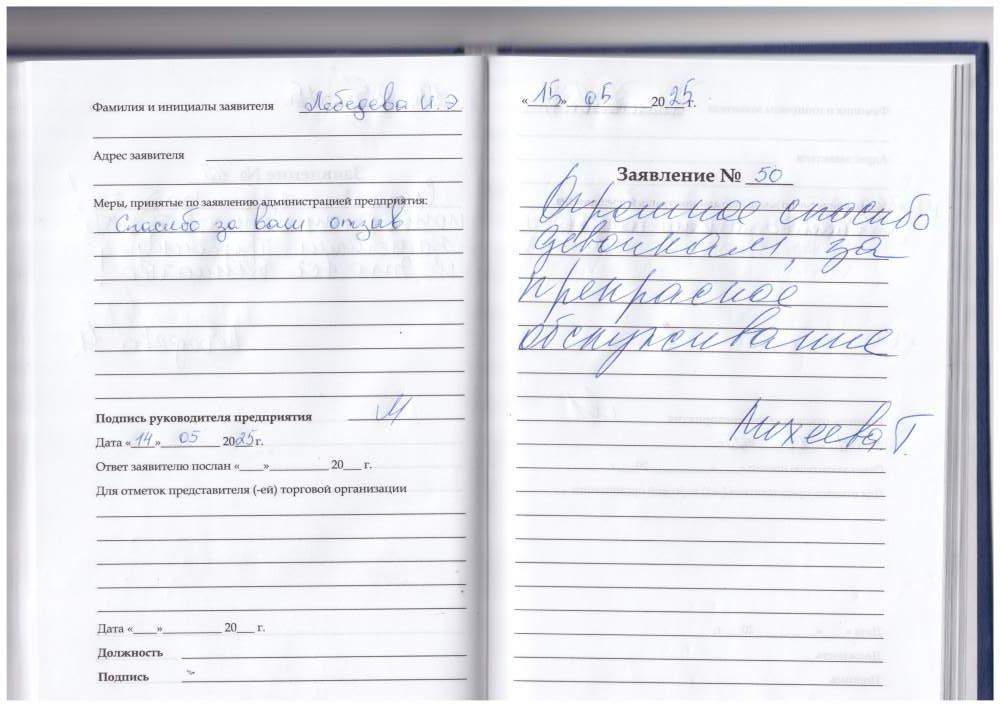 Фамилия и инициалы заявителя Лебедева И.Э
Адрес заявителя
Меры, принятые по заявлению администрацией предприятия:
Спасибо за ваш отзыв
Подпись руководителя предприятия
Дата «14» 05 2025 г.
Ответ заявителю послан «___»__________ 20___ г.
Для отметок представителя (-ей) торговой организации
Дата «___»__________ 20___ г.
Должность
Подпись
«15» 05 2025 г.
Заявление № 50
Огромное спасибо
девочкам, за
прекрасное
обслуживание
Михеева Г.